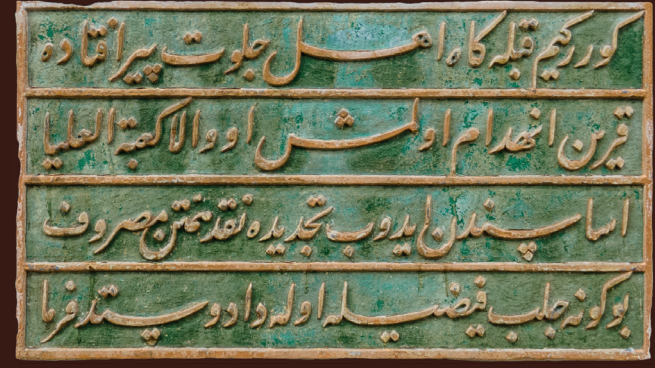 كورركيم قبله كاه اهل جلوت پير افتاده
قرين انهدام اولمش او والا كعبة العليا
اساسندن ايدوب تجديده نقد همتن مصروف
بوكونه جلب فيضيله اوله دادوستد فرما